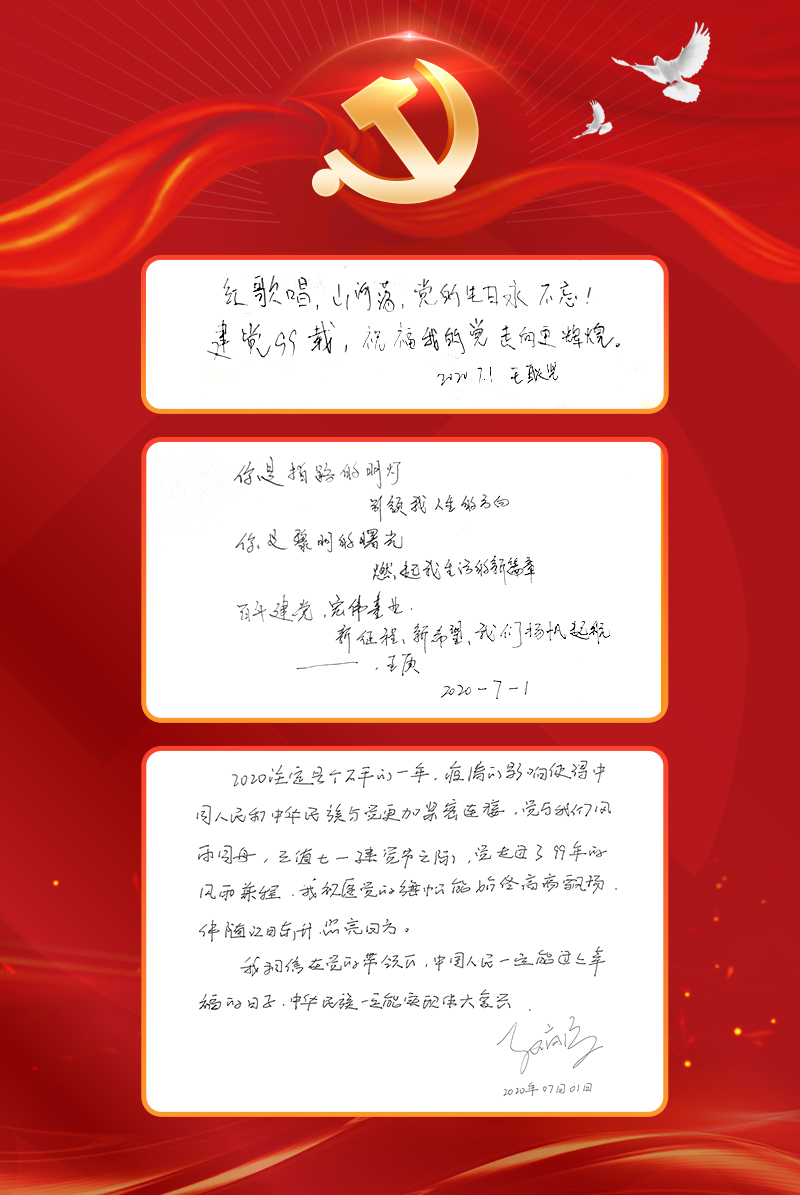 红歌唱，山河荡，党的生日永不忘！
建党99载，祝福我的党走向更辉煌。
2020.7.1 王
你是指路的明灯
引领我人生的方向
你是黎明的曙光
燃起我生活的新篇章
百年建党，宏伟基业.
新征程、新希望、我们扬帆起航
——.王
2020-7-1
2020注定是个不平的一年，疫情的影响使得中
国人民和中华民族与党更加紧密连接，党与我们风
雨同舟，正值七一建党节之际，党走过了99年的
风雨兼程.我祝愿党的旗帜能始终高高飘扬.
伴随以日东升.照亮四方。
我相信在党的带领下，中国人民一定能过上幸
福的日子.中华民族一定能实现伟大复兴.
2020年07月01日